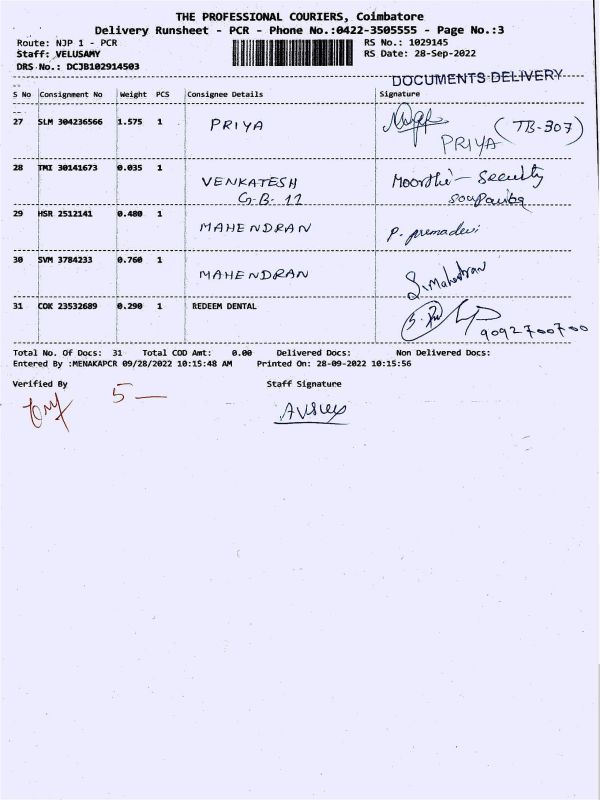 THE PROFESSIONAL COURIERS, Coimbatore
Delivery Runsheet - PCR - Phone No.:0422-3505555 - Page No.:3
Route: NJP 1 - PCR RS No.: 1029145
Staff: VELUSAMY RS Date: 28-Sep-2022
DRS No.: DCJB102914503
DOCUMENTS DELIVERY
S No Consignment No Weight PCS Consignee Details Signature
27 SLM 304236566 1.575 1 PRIYA (TB-307)
PRIYA
28 TMI 30141673 0.035 1 VENKATESH Moorthi - Security
G.B. 11
29 HSR 2512141 0.480 1 MAHENDRAN P. premadevi
30 SVM 3784233 0.760 1 MAHENDRAN S. Mahendran
31 COK 23532689 0.290 1 REDEEM DENTAL
9092700700
Total No. Of Docs: 31 Total COD Amt: 0.00 Delivered Docs: Non Delivered Docs:
Entered By :MENAKAPCR 09/28/2022 10:15:48 AM Printed On: 28-09-2022 10:15:56
Verified By Staff Signature
5 —